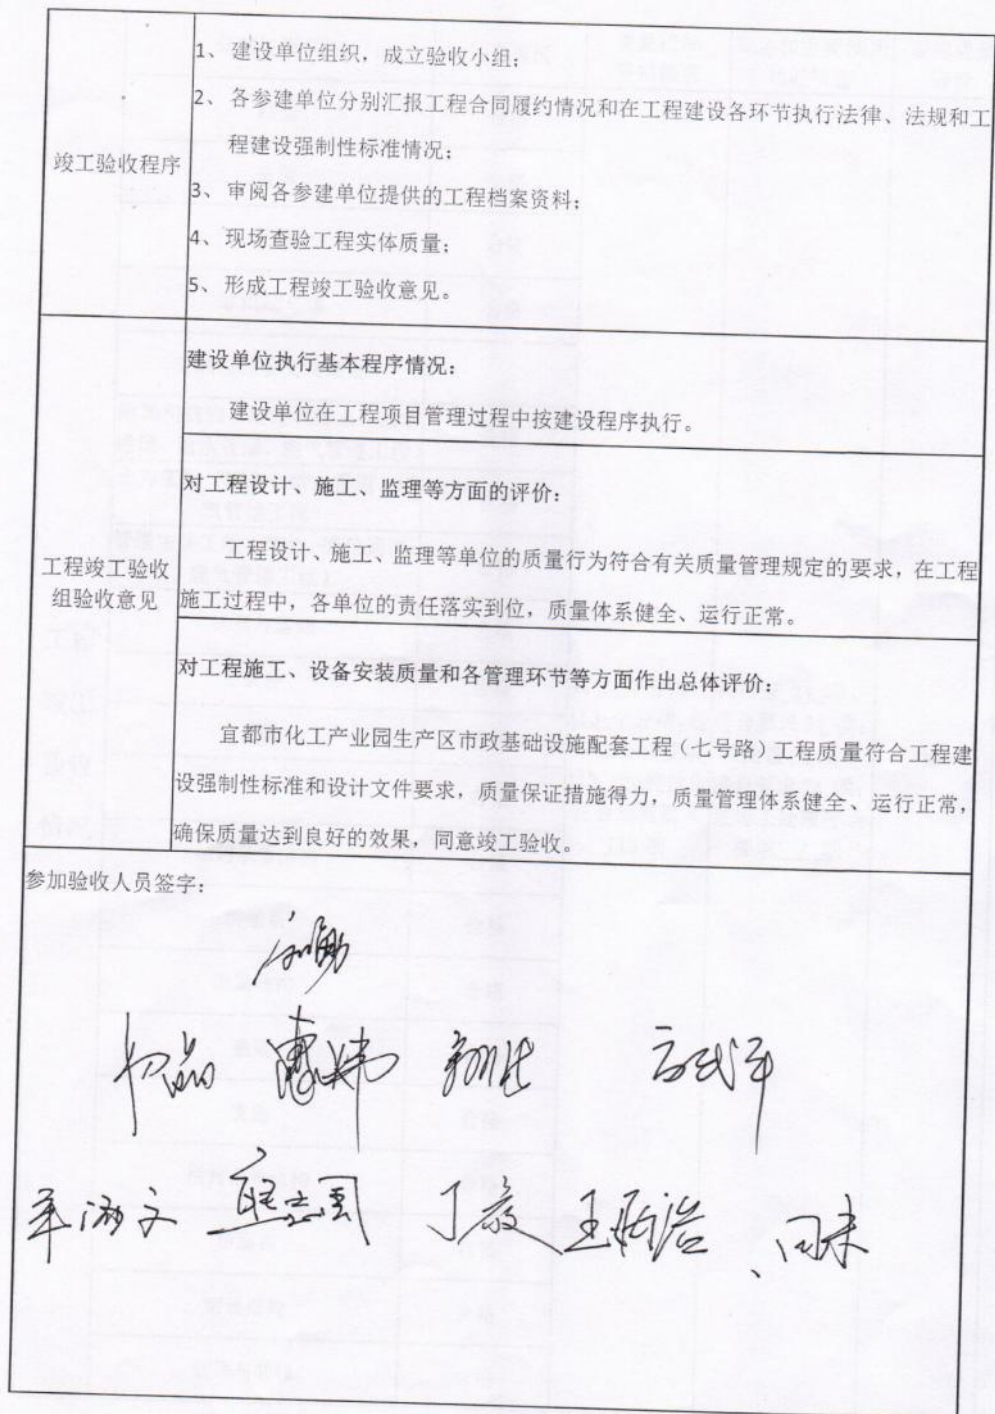 竣工验收程序
1、建设单位组织，成立验收小组；
2、各参建单位分别汇报工程合同履约情况和在工程建设各环节执行法律、法规和工
程建设强制性标准情况；
3、审阅各参建单位提供的工程档案资料；
4、现场查验工程实体质量；
5、形成工程竣工验收意见。
工程竣工验收
组验收意见
建设单位执行基本程序情况：
建设单位在工程项目管理过程中按建设程序执行。
对工程设计、施工、监理等方面的评价：
工程设计、施工、监理等单位的质量行为符合有关质量管理规定的要求，在工程
施工过程中，各单位的责任落实到位，质量体系健全、运行正常。
对工程施工、设备安装质量和各管理环节等方面作出总体评价：
宜都市化工产业园生产区市政基础设施配套工程（七号路）工程质量符合工程建
设强制性标准和设计文件要求，质量保证措施得力，质量管理体系健全、运行正常，
确保质量达到良好的效果，同意竣工验收。
参加验收人员签字：